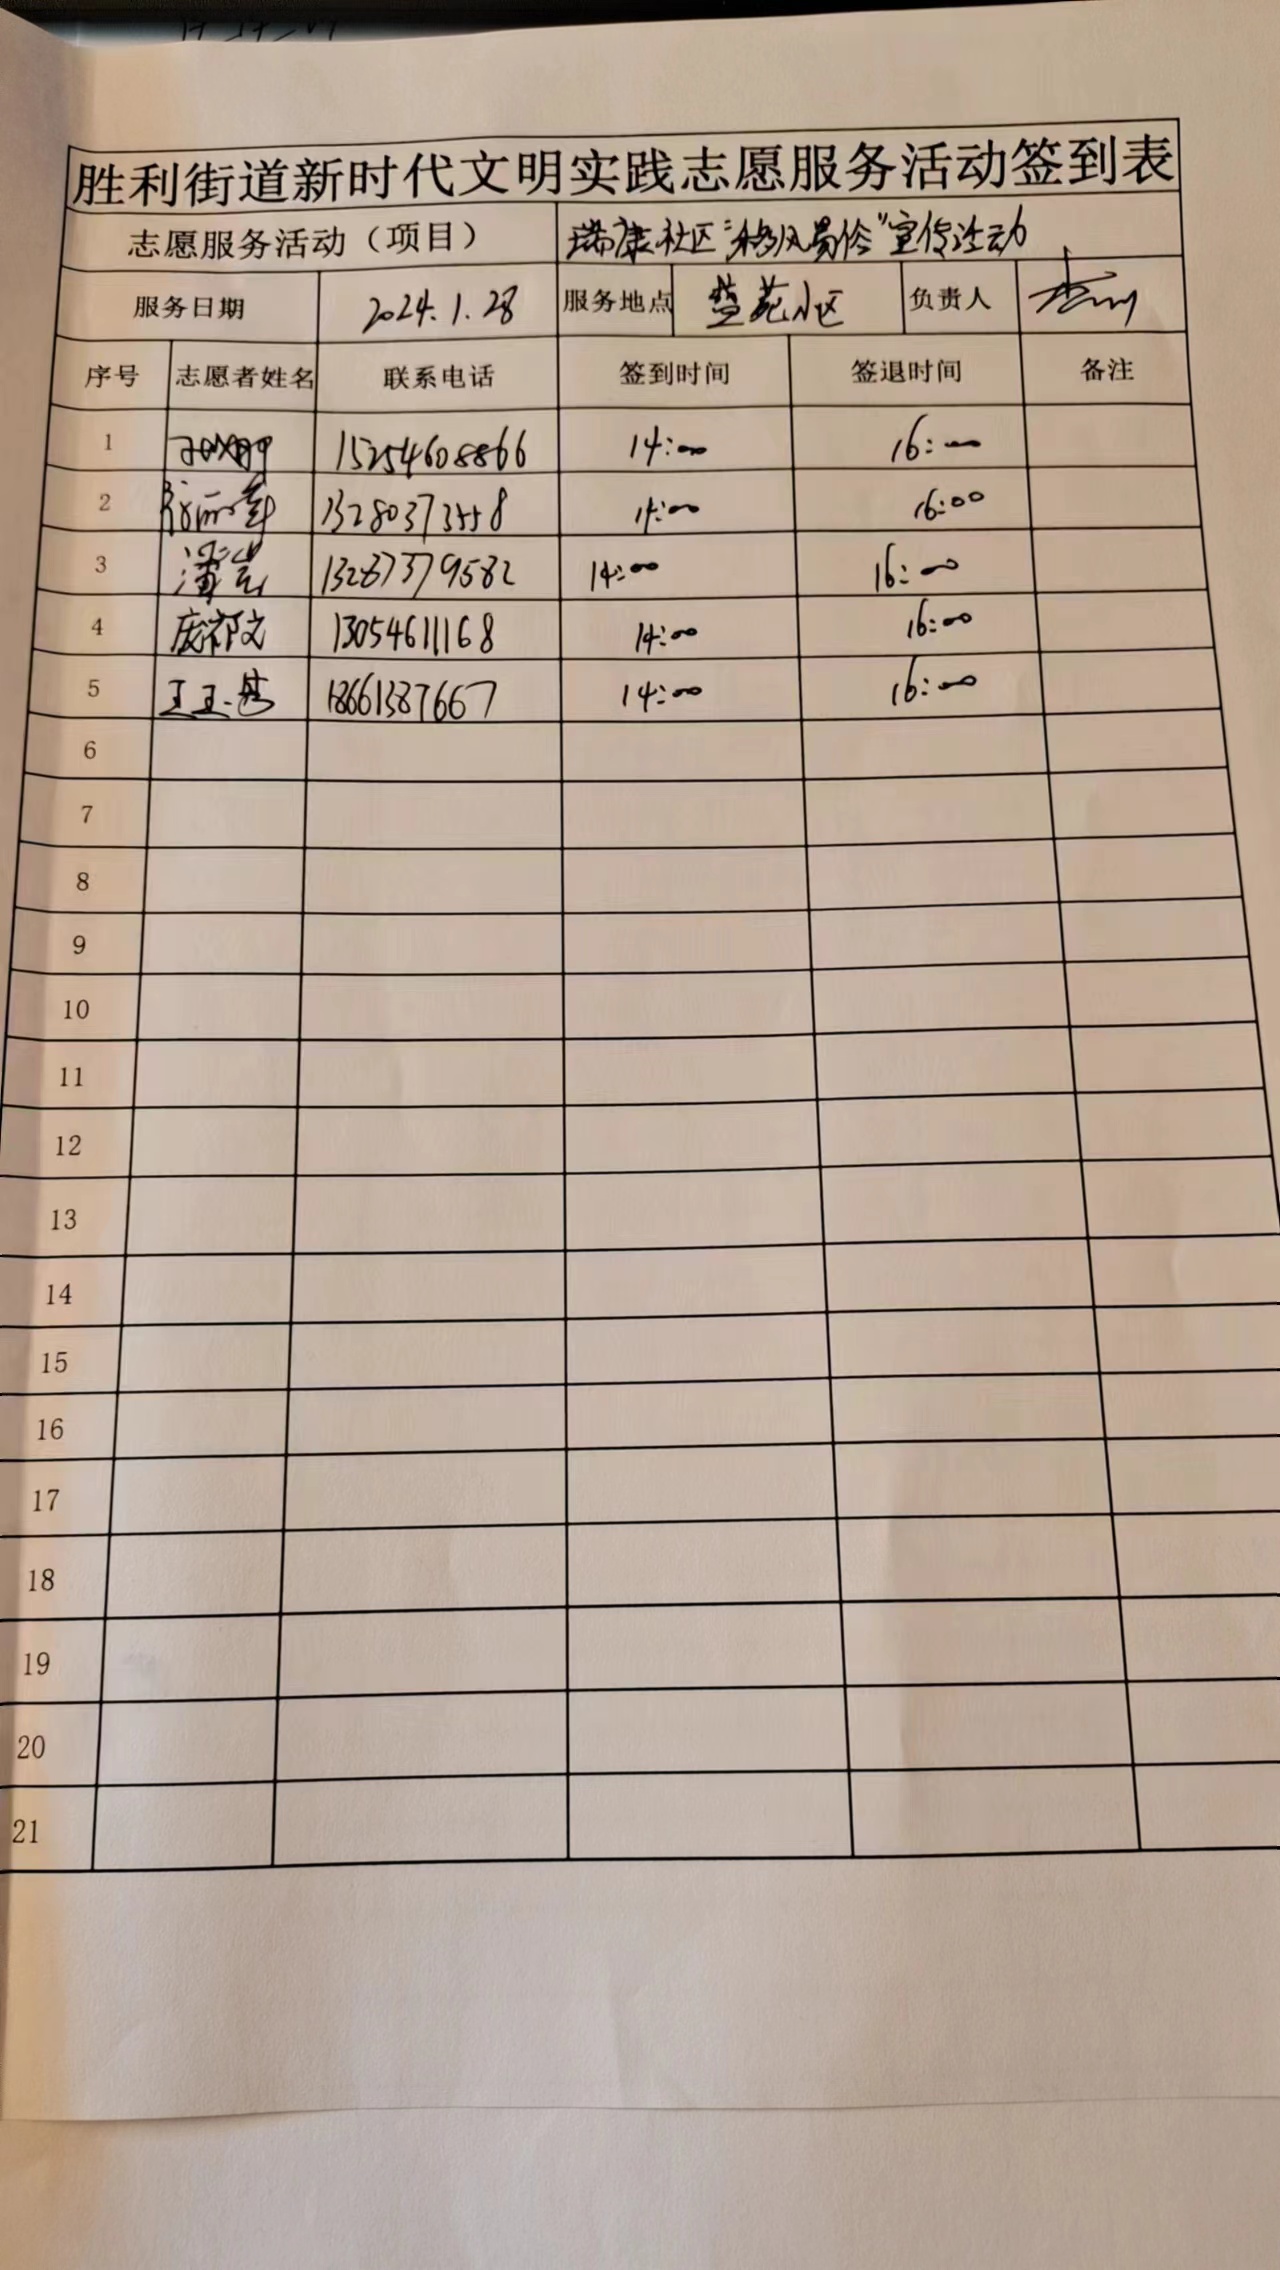 胜利街道新时代文明实践志愿服务活动签到表
志愿服务活动（项目） 瑞康社区“移风易俗”宣传活动
服务日期 2024.1.28 服务地点 蓝苑小区 负责人
序号 志愿者姓名 联系电话 签到时间 签退时间 备注
1 15254608866 14:00 16:00
2 13280373558 14:00 16:00
3 潘芸 13287379582 14:00 16:00
4 庞祁文 13054611168 14:00 16:00
5 王玉 18661387667 14:00 16:00
6
7
8
9
10
11
12
13
14
15
16
17
18
19
20
21